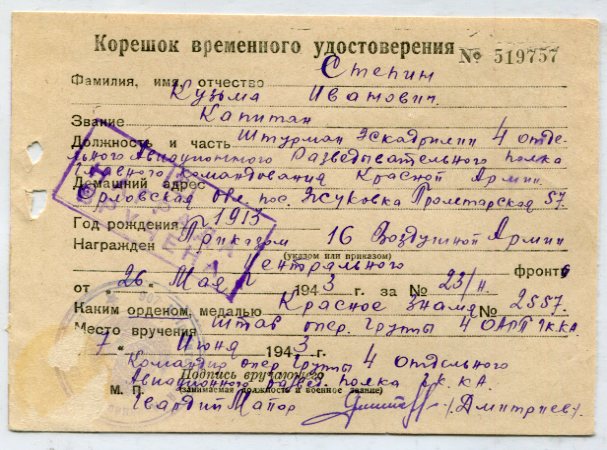 Корешок временного удостоверения № 519757
Фамилия, имя, отчество Степин
Кузьма Иванович.
Звание Капитан
Должность и часть Штурман Эскадрилии 4 отде-
льного Авиационного Разведывательного полка
Главного командования Красной Армии.
Домашний адрес
Орловская обл. пос. Жуковка Пролетарская 57.
Год рождения 1913
Награжден Приказом 16 Воздушной Армии
(указом или приказом)
Центрального фронта
от „26" Мая 1943 г. за № 23/н.
Каким орденом, медалью Красное Знамя № 2557.
Место вручения Штаб опер. группы 4 ОАРП ГК КА
„7" Июня 1943 г.
Командир опер группы 4 Отдельного
Подпись вручающего
Авиационного развед. полка г.к. КА.
М. П. (занимаемая должность и военное звание)
Гвардии Майор /Дмитриев/.